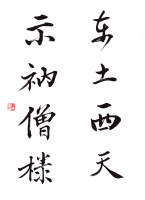 东土西天
示衲僧樣